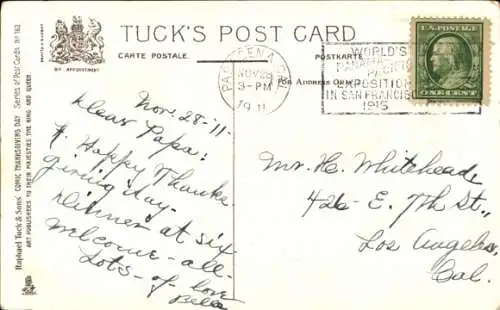 TUCK'S POST CARD
CARTE POSTALE.
POSTKARTE.
BY APPOINTMENT
For Address Only
PASADENA, CAL.
NOV 28
3-PM
1911
WORLD'S
PANAMA PACIFIC
EXPOSITION
IN SAN FRANCISCO
1915
U.S. POSTAGE
ONE CENT
Raphael Tuck & Sons' COMIC THANKSGIVING DAY Series of Post Cards No 162
ART PUBLISHERS TO THEIR MAJESTIES THE KING AND QUEEN
Nov. 28-'11-
Dear Papa:
A Happy Thanks-
giving day-
Dinner at six
Welcome-all-
Lots-of-love
Bella
Mr. H. Whitehead
426- E. 7th St.,
Los Angeles,
Cal.